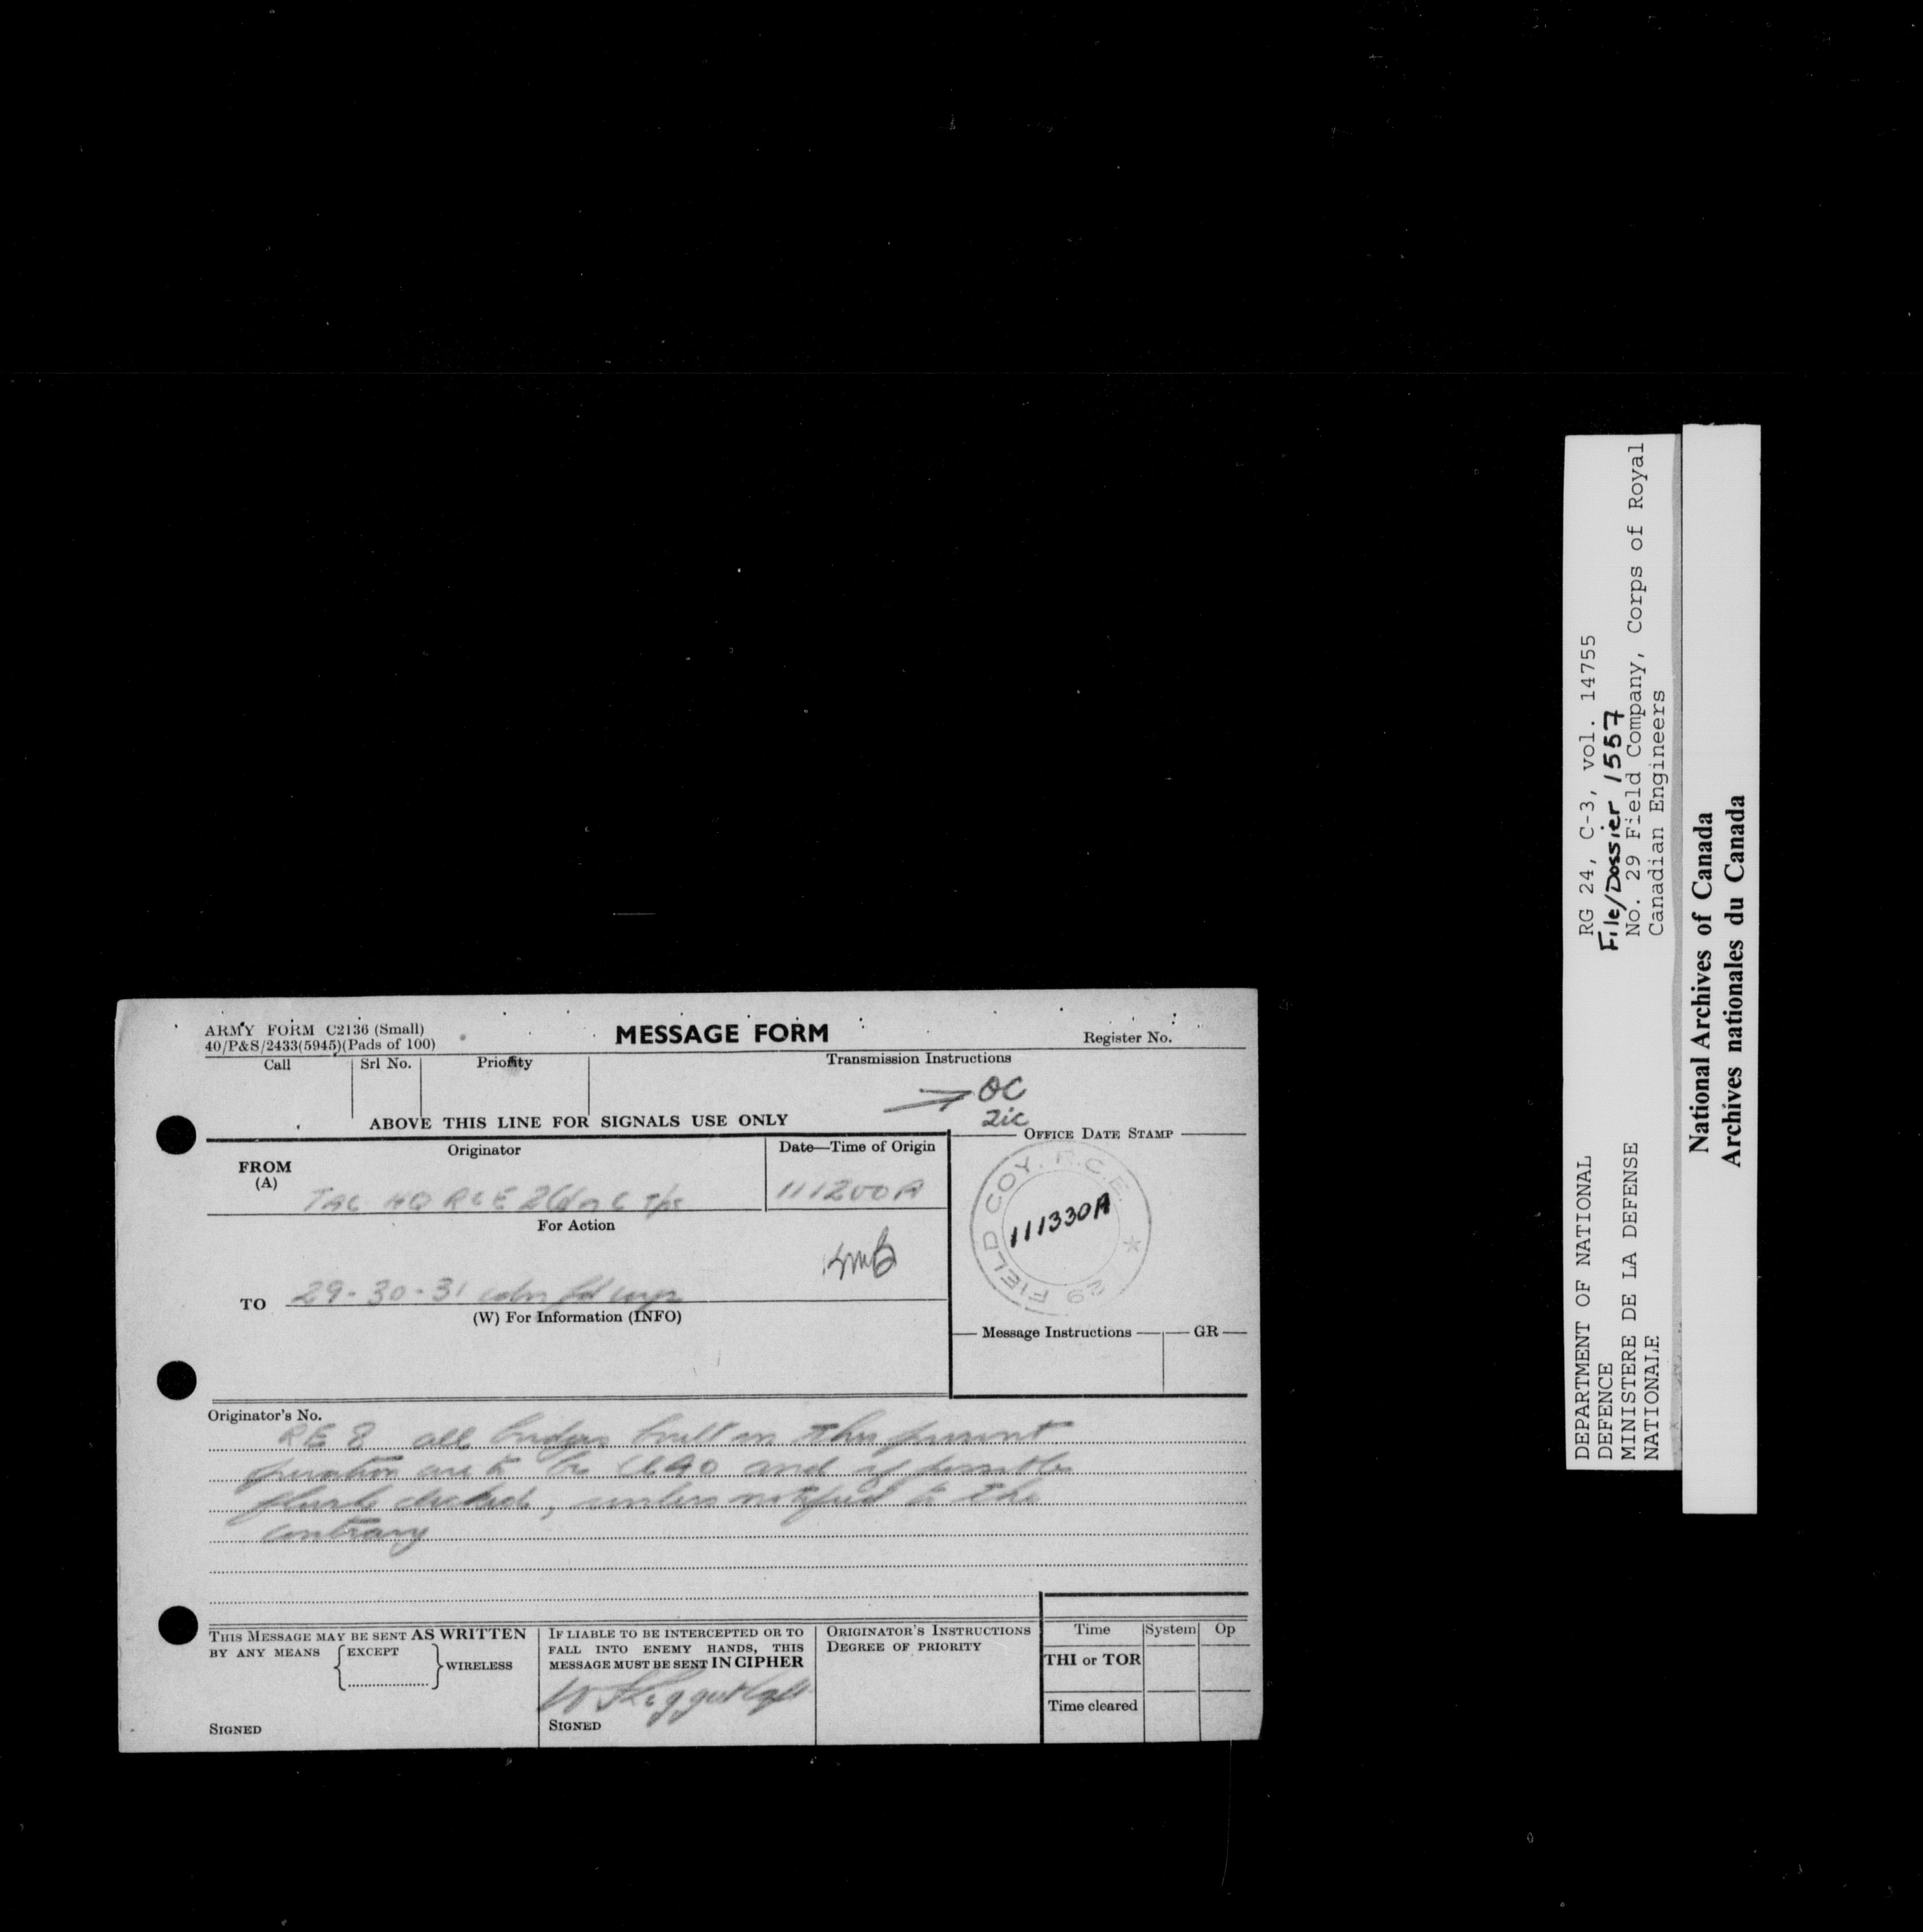 ARMY FORM C2136 (Small)
40/P&S/2433(5945)(Pads of 100)
MESSAGE FORM
Register No.
Call
Srl No.
Priority
Transmission Instructions
OC
2ic
ABOVE THIS LINE FOR SIGNALS USE ONLY
Originator
Date—Time of Origin
OFFICE DATE STAMP
FROM
(A)
TAC HQ RCE 2 Cdn
111200A
29 FIELD COY. R.C.E.
111330A
For Action
TO
29-30-31 cdn fd coys
(W) For Information (INFO)
Message Instructions
GR
Originator's No.
RE 8 all bridges built in this present
operation are to be CL40 and if possible
decked, unless notified to the
contrary
THIS MESSAGE MAY BE SENT AS WRITTEN
BY ANY MEANS
EXCEPT
WIRELESS
SIGNED
IF LIABLE TO BE INTERCEPTED OR TO
FALL INTO ENEMY HANDS, THIS
MESSAGE MUST BE SENT IN CIPHER
SIGNED
ORIGINATOR'S INSTRUCTIONS
DEGREE OF PRIORITY
Time
System
Op
THI or TOR
Time cleared
DEPARTMENT OF NATIONAL
DEFENCE
MINISTERE DE LA DEFENSE
NATIONALE
RG 24, C-3, vol. 14755
File/Dossier 1557
No. 29 Field Company, Corps of Royal
Canadian Engineers
National Archives of Canada
Archives nationales du Canada